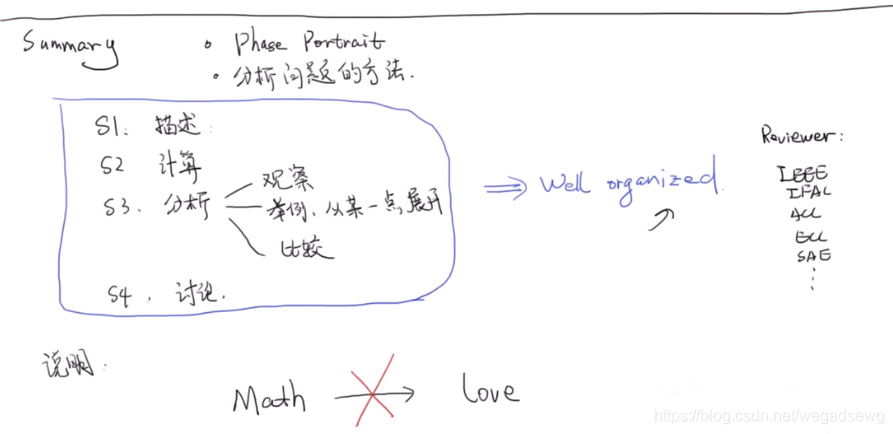 Summary
• Phase Portrait
• 分析问题的方法.
S1. 描述
S2 计算
S3. 分析
观察
举例、从某一点展开
比较
S4. 讨论.
⇒ Well organized.
Reviewer:
IEEE
IFAC
ACC
ECC
SAE
⋮
说明:
Math → Love
https://blog.csdn.net/wegadsewg